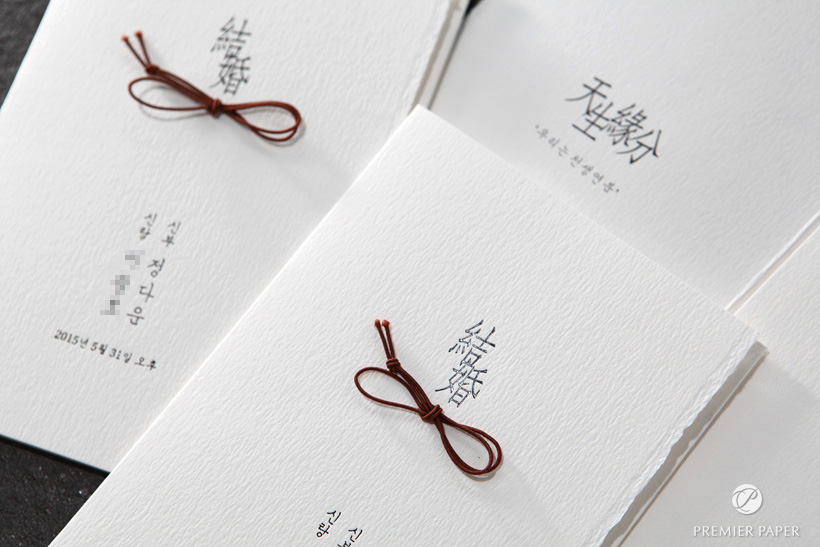 結婚
신부 정다운
신랑
2015년 5월 31일 오후
天生緣分
'우리는 천생연분'
結婚
신부
신랑
PREMIER PAPER